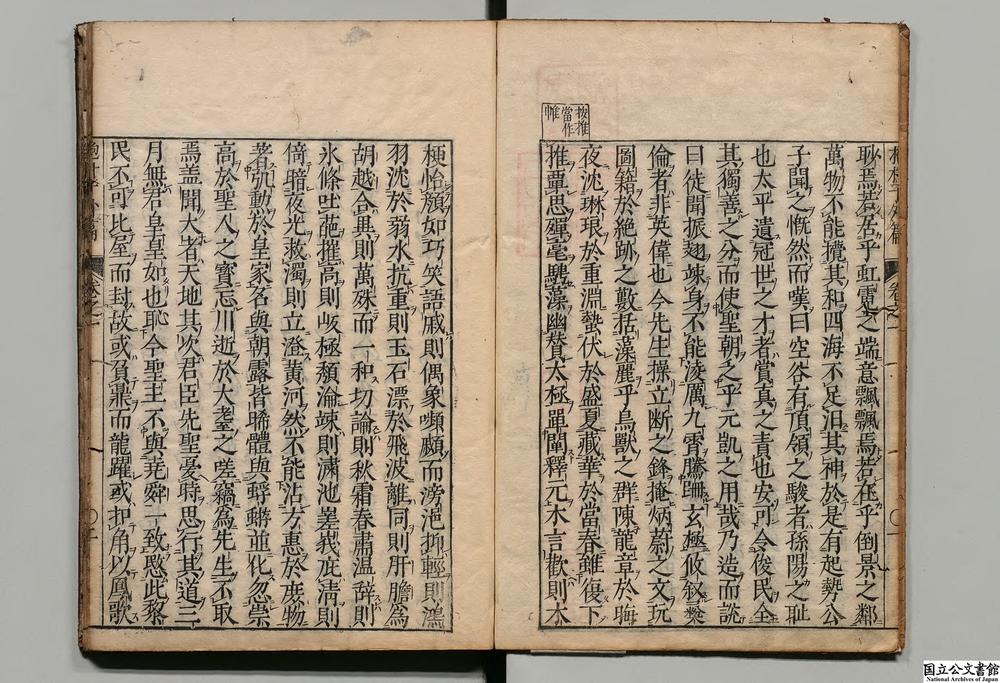 按推
當作
帷
耿焉若居乎虹霓之端意飄飄焉若在乎倒景之鄰
萬物不能攪其和四海不足汨其神於是有赴勢公
子聞之慨然而嘆曰空谷有項領之駿者孫陽之耻
也太平遺冠世之才者賞真之責也安可令俊民全
其獨善之分而使聖朝乏乎元凱之用哉乃造而說
曰徒聞振翅竦身不能凌厲九霄騰跚玄極攸敘彝
倫者非英偉也今先生操立断之鋒掩炳蔚之文玩
圖籍於絕跡之藪括藻麗乎鳥獸之群陳龍章於晦
夜沈琳琅於重淵蟄伏於盛夏藏華於當春雖復下
推覃思殫毫騁藻幽贊太極單闡釋元本言歡則木
梗怡顏如巧笑語戚則偶象嚬顣而滂沲抑輕則鴻
羽沈於弱水抗重則玉石漂於飛波離同則肝膽為
胡越合異則萬殊而一和切論則秋霜春肅溫辭則
氷條吐葩摧高則峻極頹淪竦則淵池嵳峩疵清則
倚暗夜光救濁則立澄黃河然不能沾大惠於庶物
著弘勳於皇家名與朝露皆晞體與蜉蝣並化忽崇
高於聖人之寶忘川逝於大耋之嗟竊為先生不取
焉盖聞大者天地其次君臣先聖憂時思行其道三
月無君皇皇如也恥今聖主不與堯舜一致愍此黎
民不可比屋而封故或負鼎而龍躍或扣角以鳳歌
国立公文書館
National Archives of Japan